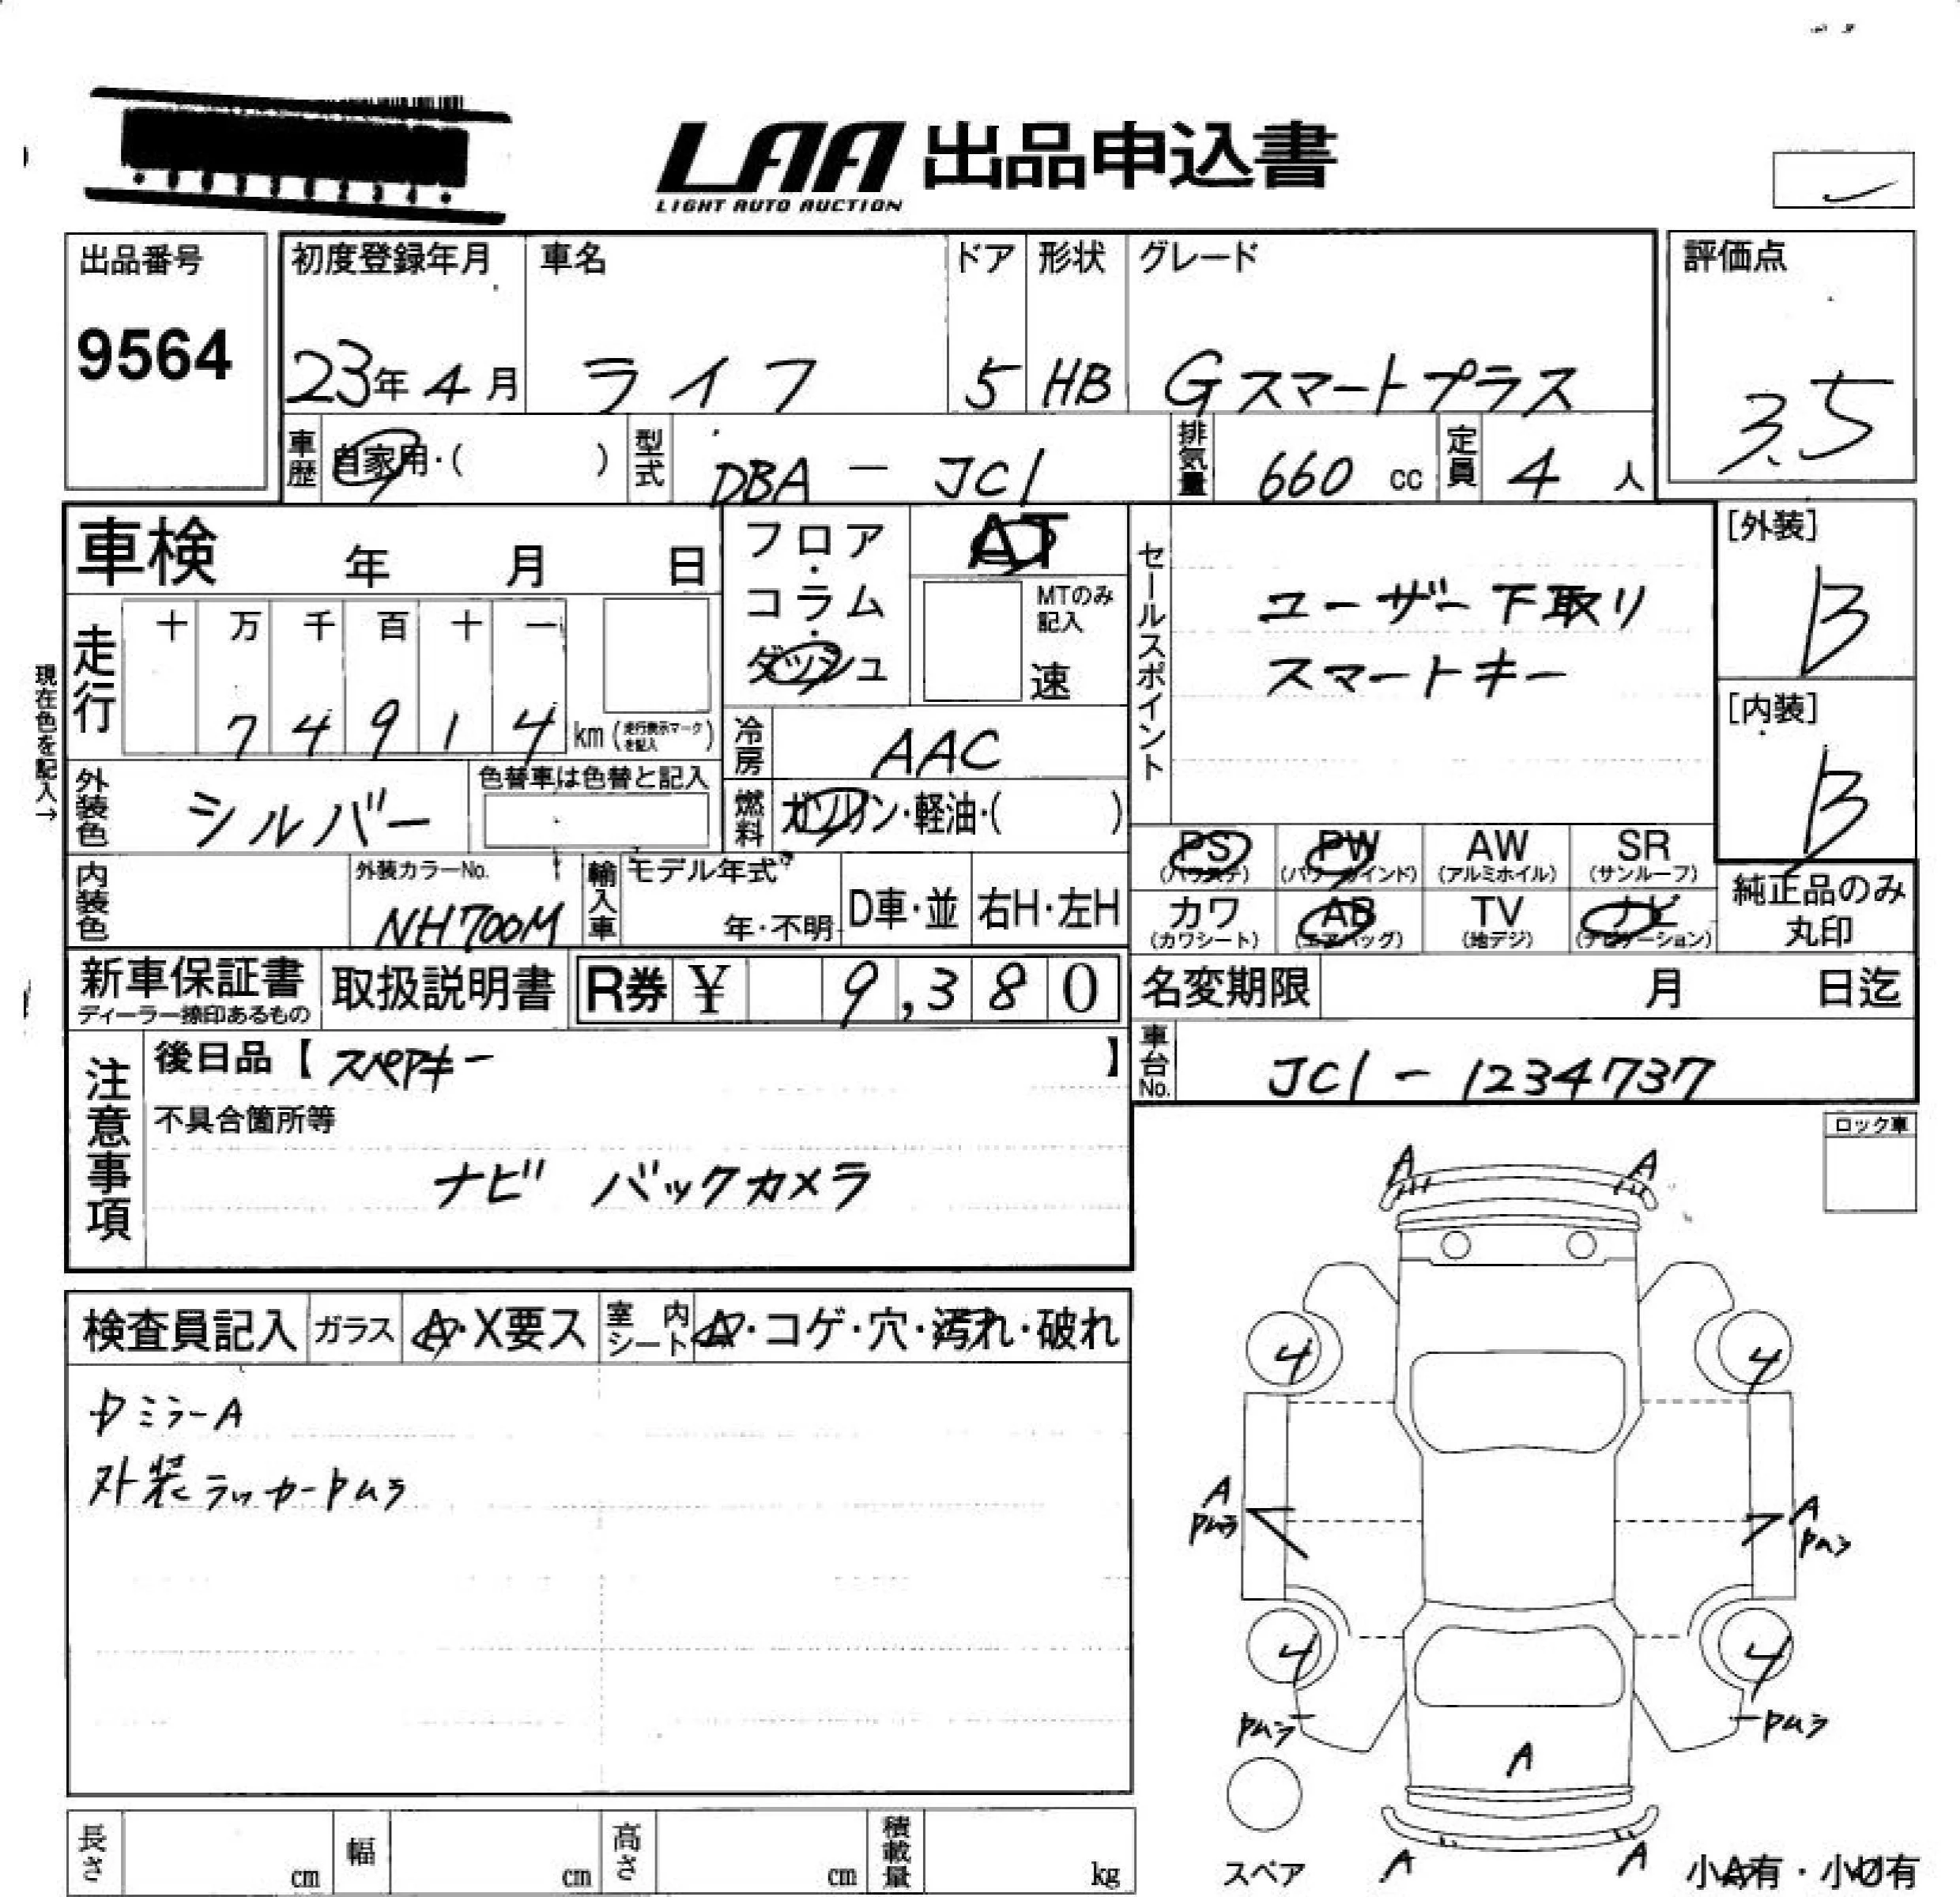 LAA 出品申込書
LIGHT AUTO AUCTION
出品番号
9564
初度登録年月
23年 4月
車名
ライフ
ドア
5
形状
HB
グレード
Gスマートプラス
評価点
3.5
車歴
自家用・( )
型式
DBA - JC1
排気量
660 cc
定員
4 人
車検 年 月 日
フロア・コラム・ダッシュ
AT
MTのみ記入
速
セールスポイント
ユーザー下取り
スマートキー
[外装]
B
[内装]
B
現在色を記入→
走行
十 万 千 百 十 一
7 4 9 1 4 km (走行表示マークを記入)
冷房
AAC
外装色
シルバー
色替車は色替と記入
燃料
ガソリン・軽油・( )
内装色
外装カラーNo.
NH700M
輸入車
モデル年式
年・不明
D車・並
右H・左H
PS (パワステ)
PW (パワーウインド)
AW (アルミホイル)
SR (サンルーフ)
カワ (カワシート)
AB (エアバッグ)
TV (地デジ)
ナビ (ナビゲーション)
純正品のみ
丸印
新車保証書
ディーラー捺印あるもの
取扱説明書
R券 ¥ 9,380
名変期限 月 日迄
車台No.
JC1 - 1234737
注意事項
後日品【 スペアキー 】
不具合箇所等
ナビ バックカメラ
ロック車
検査員記入
ガラス
A・X要ス
室内シート
A・コゲ・穴・汚れ・破れ
ミラーA
外装ラッカーPムラ
A A
4 4
A A
Pムラ Pムラ
4 4
Pムラ Pムラ
A
A A
スペア
小A有・小U有
長さ cm
幅 cm
高さ cm
積載量 kg